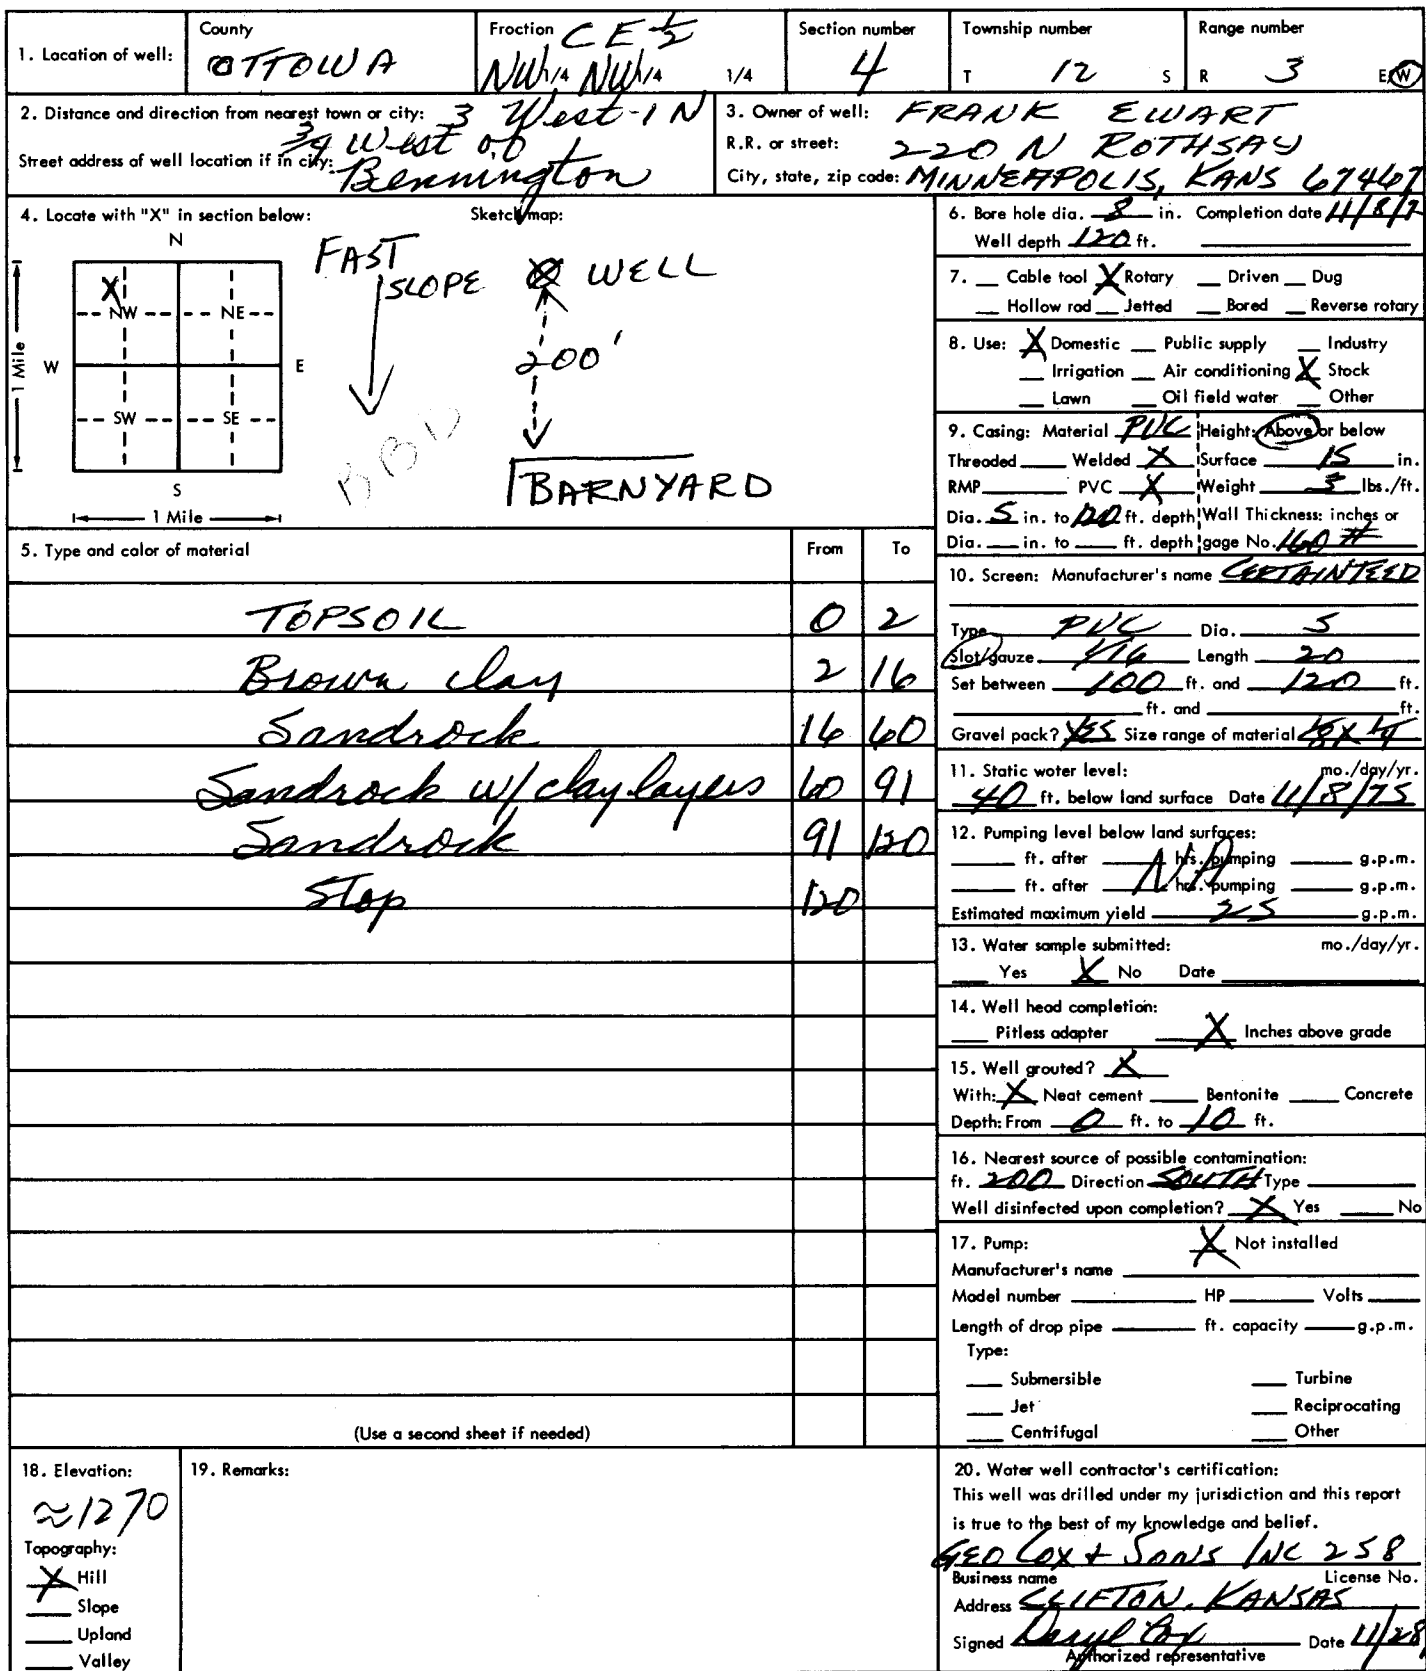 1. Location of well: County OTTOWA Froction C E ½ NW 1/4 NW 1/4 1/4 Section number 4 Township number T 12 S Range number R 3 E/W
2. Distance and direction from nearest town or city: 3 West - 1 N
3/4 West of
Street address of well location if in city: Bennington
3. Owner of well: FRANK EWART
R.R. or street: 220 N ROTHSAY
City, state, zip code: MINNEAPOLIS, KANS 67467
4. Locate with "X" in section below: Sketch map:
N
X
NW NE
W E
SW SE
S
1 Mile
1 Mile
FAST
SLOPE
WELL
200'
BARNYARD
BBD
5. Type and color of material From To
TOPSOIL 0 2
Brown clay 2 16
Sandrock 16 60
Sandrock w/ clay layers 60 91
Sandrock 91 120
Stop 120
(Use a second sheet if needed)
6. Bore hole dia. 8 in. Completion date 11/8/7
Well depth 120 ft.
7. Cable tool X Rotary Driven Dug
Hollow rod Jetted Bored Reverse rotary
8. Use: X Domestic Public supply Industry
Irrigation Air conditioning X Stock
Lawn Oil field water Other
9. Casing: Material PVC Height: Above or below
Threaded Welded X Surface 15 in.
RMP PVC X Weight lbs./ft.
Dia. 5 in. to 120 ft. depth Wall Thickness: inches or
Dia. in. to ft. depth gage No. 160 #
10. Screen: Manufacturer's name CERTAINTEED
Type PVC Dia. 5
Slot/gauze 1/16 Length 20
Set between 100 ft. and 120 ft.
ft. and ft.
Gravel pack? YES Size range of material 1/8 X 1/4
11. Static water level: mo./day/yr.
40 ft. below land surface Date 11/8/75
12. Pumping level below land surfaces:
ft. after hrs. pumping g.p.m.
NA
ft. after hrs. pumping g.p.m.
Estimated maximum yield 25 g.p.m.
13. Water sample submitted: mo./day/yr.
Yes X No Date
14. Well head completion:
Pitless adapter X Inches above grade
15. Well grouted? X
With: X Neat cement Bentonite Concrete
Depth: From 0 ft. to 10 ft.
16. Nearest source of possible contamination:
ft. 200 Direction SOUTH Type
Well disinfected upon completion? X Yes No
17. Pump: X Not installed
Manufacturer's name
Model number HP Volts
Length of drop pipe ft. capacity g.p.m.
Type:
Submersible Turbine
Jet Reciprocating
Centrifugal Other
18. Elevation:
≈1270
Topography:
X Hill
Slope
Upland
Valley
19. Remarks:
20. Water well contractor's certification:
This well was drilled under my jurisdiction and this report
is true to the best of my knowledge and belief.
GEO COX + SONS INC 258
Business name License No.
Address CLIFTON, KANSAS
Signed Daryl Cox Date 11/28
Authorized representative